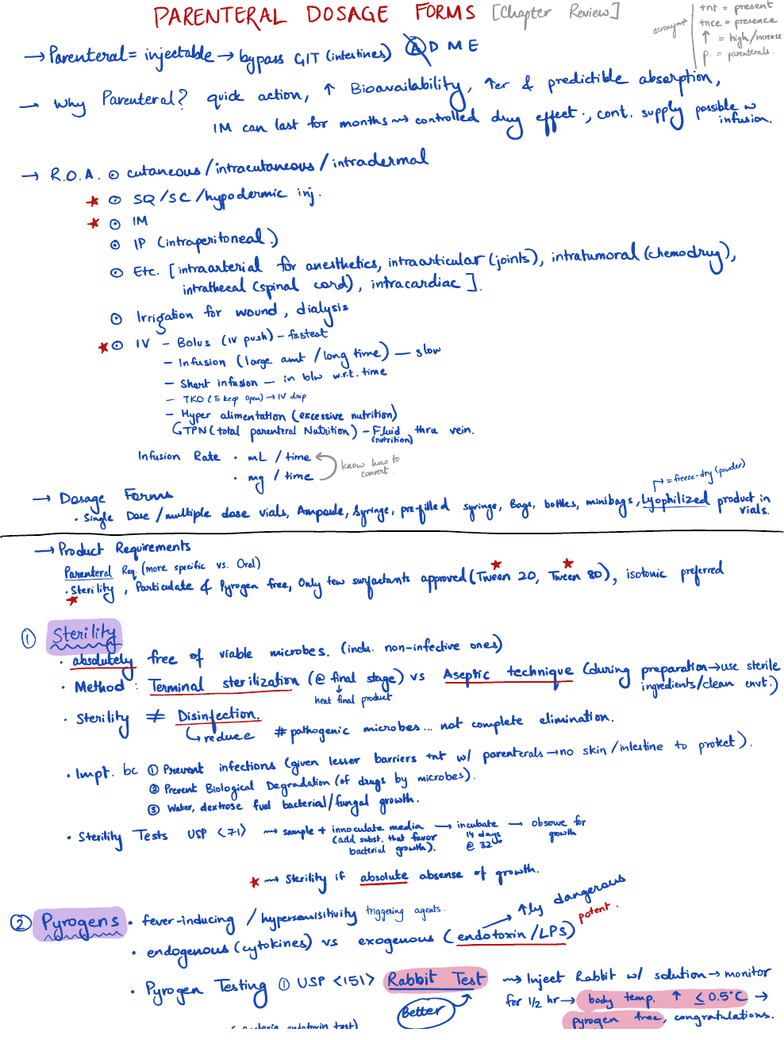 PARENTERAL DOSAGE FORMS [Chapter Review]
acronyms
tnt = present
tnce = presence
↑ = high/increase
p. = parenterals
→ Parenteral = injectable → bypass GIT (intestines) A D M E
→ Why Parenteral? quick action, ↑ Bioavailability, ↑er & predictible absorption,
IM can last for months → controlled drug effect., cont. supply possible w infusion.
→ R.O.A. ⊙ cutaneous/intracutaneous/intradermal
★ ⊙ SQ/SC/hypodermic inj.
★ ⊙ IM
⊙ IP (intraperitoneal)
⊙ Etc. [intraarterial for anesthetics, intraarticular (joints), intratumoral (chemodrug),
intrathecal (spinal cord), intracardiac].
⊙ Irrigation for wound, dialysis
★ ⊙ IV – Bolus (IV push) – fastest
– Infusion (large amt/long time) — slow
– Short infusion – in b/w w.r.t. time
– TKO (To keep open) → IV drip
– Hyper alimentation (excessive nutrition)
↳ TPN (total parenteral Nutrition) – Fluid (nutrition) thru vein.
Infusion Rate • mL / time
• mg / time
know how to convert.
→ = freeze-dry (powder)
→ Dosage Forms
• Single Dose/multiple dose vials, Ampoule, Syringe, pre-filled syringe, Bags, bottles, minibags, Lyophilized product in vials.
→ Product Requirements
Parenteral Req. (more specific vs. Oral)
• Sterility, Particulate & Pyrogen free, Only few surfactants approved (Tween 20, Tween 80), isotonic preferred
① Sterility
• absolutely free of viable microbes. (inclu. non-infective ones)
• Method: Terminal sterilization (@ final stage) vs Aseptic technique (during preparation → use sterile ingredients/clean envt.)
↓ heat final product
• Sterility ≠ Disinfection.
↳ reduce # pathogenic microbes... not complete elimination.
• Impt. bc ① Prevent infections (given lesser barriers tnt w/ parenterals → no skin/intestine to protect).
② Prevent Biological Degradation (of drugs by microbes).
③ Water, dextrose fuel bacterial/fungal growth.
• Sterility Tests USP <71> → sample + innoculate media → incubate → observe for growth
(add subst. that favor bacterial growth).
14 days @ 32°
★ → Sterility if absolute absense of growth.
② Pyrogens • fever-inducing / hypersensitivity triggering agents.
• endogenous (cytokines) vs exogenous (endotoxin/LPS)
↑ly dangerous
potent.
• Pyrogen Testing ① USP <151> Rabbit Test → Inject Rabbit w/ solution → monitor
for 1/2 hr → body temp. ↑ ≤ 0.5°C →
Better
pyrogen free, congratulations.